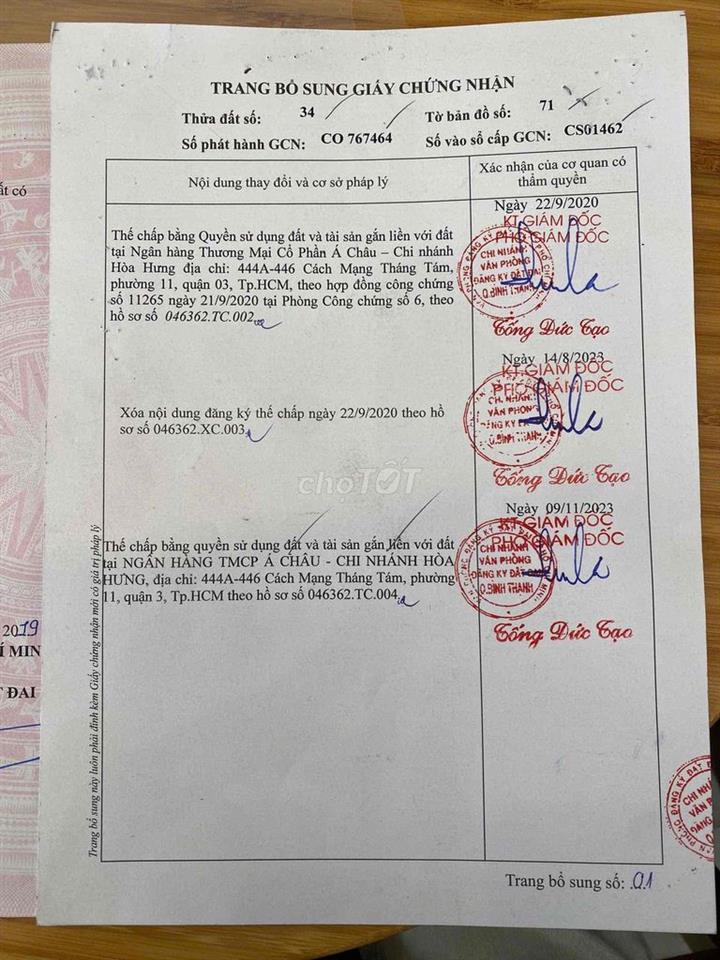 TRANG BỔ SUNG GIẤY CHỨNG NHẬN
Thửa đất số: 34 Tờ bản đồ số: 71
Số phát hành GCN: CO 767464 Số vào sổ cấp GCN: CS01462
Nội dung thay đổi và cơ sở pháp lý
Xác nhận của cơ quan có
thẩm quyền
Thế chấp bằng Quyền sử dụng đất và tài sản gắn liền với đất
tại Ngân hàng Thương Mại Cổ Phần Á Châu – Chi nhánh
Hòa Hưng địa chỉ: 444A-446 Cách Mạng Tháng Tám,
phường 11, quận 03, Tp.HCM, theo hợp đồng công chứng
số 11265 ngày 21/9/2020 tại Phòng Công chứng số 6, theo
hồ sơ số 046362.TC.002
Ngày 22/9/2020
KT.GIÁM ĐỐC
PHÓ GIÁM ĐỐC
CHI NHÁNH
VĂN PHÒNG
ĐĂNG KÝ ĐẤT ĐAI
Q.BÌNH THẠNH
Tống Đức Tạo
Xóa nội dung đăng ký thế chấp ngày 22/9/2020 theo hồ
sơ số 046362.XC.003
Ngày 14/8/2023
KT.GIÁM ĐỐC
PHÓ GIÁM ĐỐC
CHI NHÁNH
VĂN PHÒNG
ĐĂNG KÝ
Q.BÌNH THẠNH
Tống Đức Tạo
choTỐT
Thế chấp bằng quyền sử dụng đất và tài sản gắn liền với đất
tại NGÂN HÀNG TMCP Á CHÂU - CHI NHÁNH HÒA
HƯNG, địa chỉ: 444A-446 Cách Mạng Tháng Tám, phường
11, quận 3, Tp.HCM theo hồ sơ số 046362.TC.004
Ngày 09/11/2023
KT.GIÁM ĐỐC
PHÓ GIÁM ĐỐC
CHI NHÁNH
VĂN PHÒNG
ĐĂNG KÝ ĐẤT ĐAI
Q.BÌNH THẠNH
Tống Đức Tạo
Trang bổ sung này luôn phải đính kèm Giấy chứng nhận mới có giá trị pháp lý
Trang bổ sung số: 01
ất có
2019
Í MIN
ĐẤT ĐAI